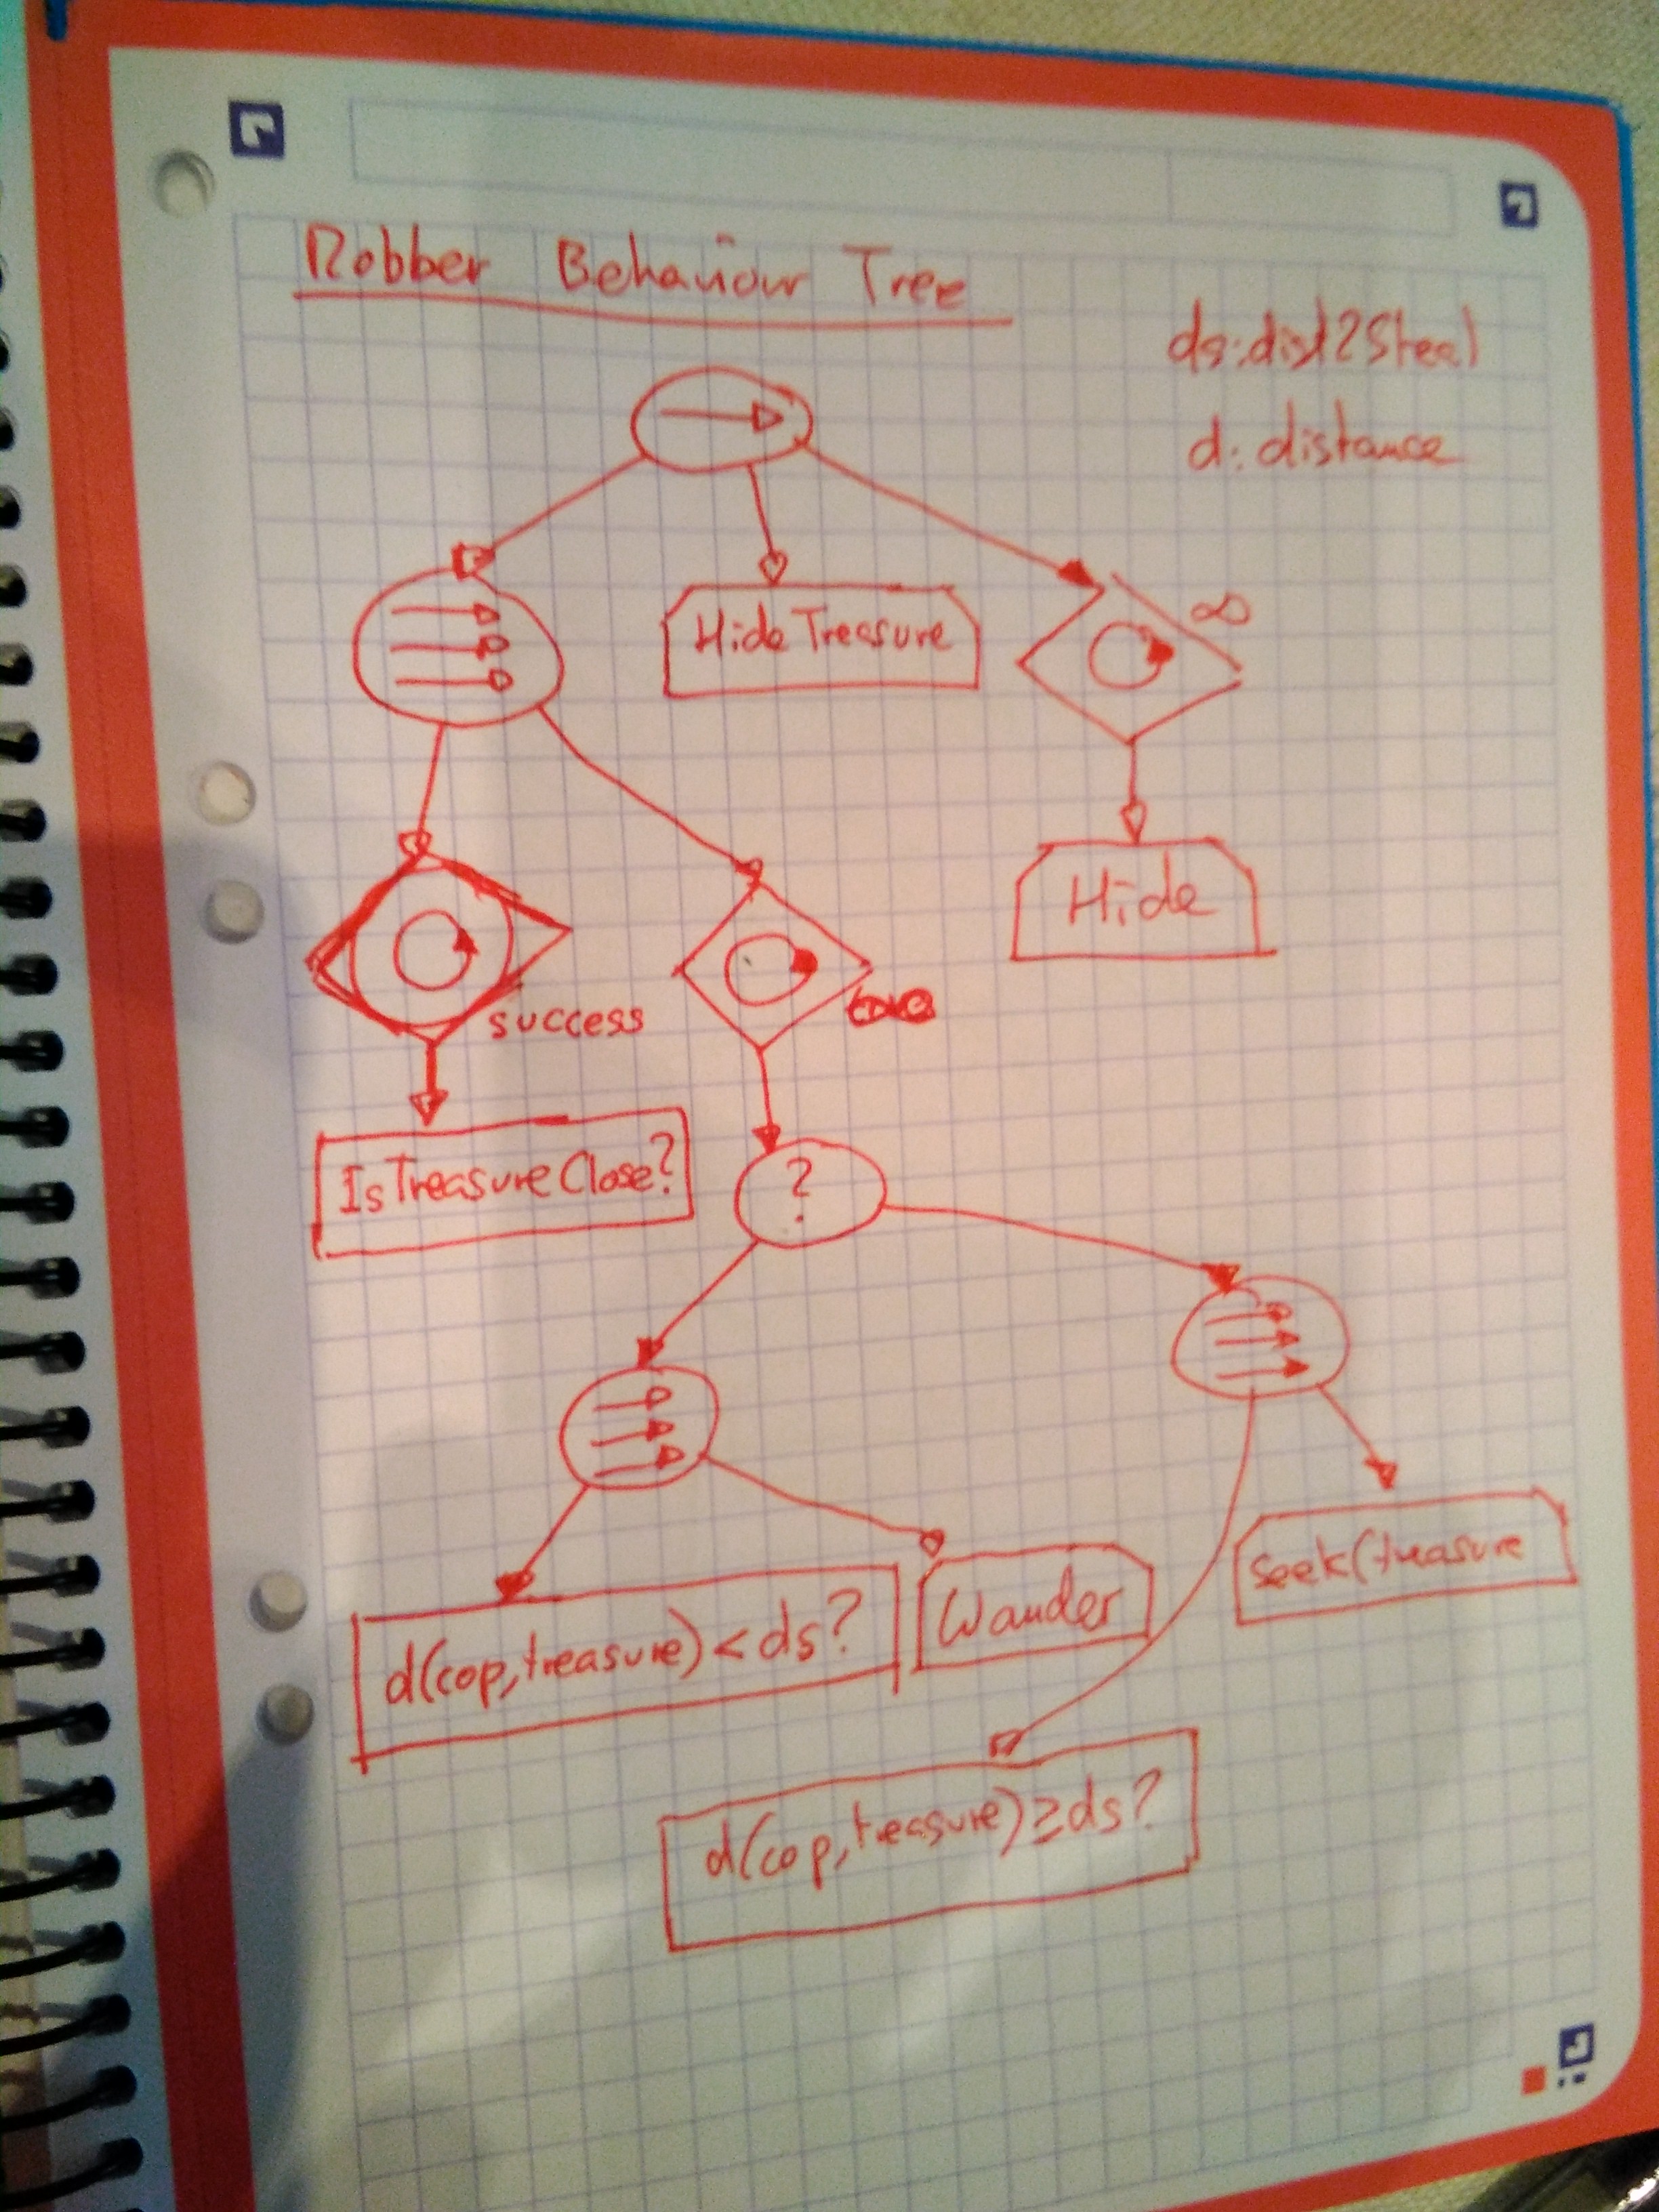 Robber Behaviour Tree
ds: dist2Steal
d: distance
HideTreasure
∞
Hide
success
IsTreasureClose?
?
d(cop,treasure) < ds?
Wander
seek(treasure
d(cop,treasure) ≥ ds?